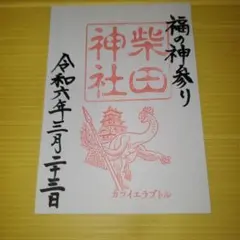 福の神参り
柴田
神社
カツイエラプトル
令和六年三月二十三日